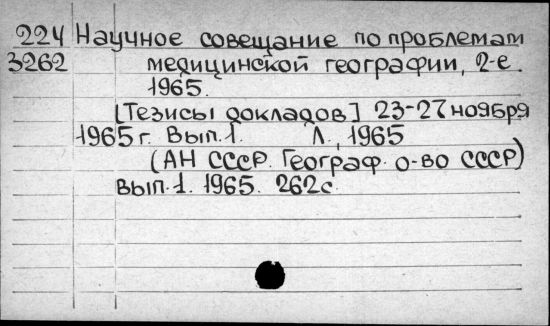 224 Научное совещание по проблемам
3262 медицинской географии, 2-е.
1965.
[Тезисы докладов] 23-27 ноября
1965 г. Вып. 1. Л., 1965
(АН СССР. Географ. о-во СССР)
Вып. 1. 1965. 262 с.